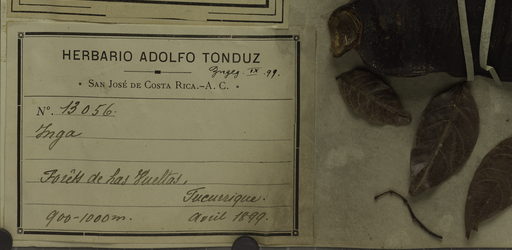 HERBARIO ADOLFO TONDUZ
IX 99.
• SAN JOSÉ DE COSTA RICA.-A. C. •
N°. 13056.
Inga
Forêts de Las Vueltas,
Tucurrique.
900-1000m. Avril 1899.